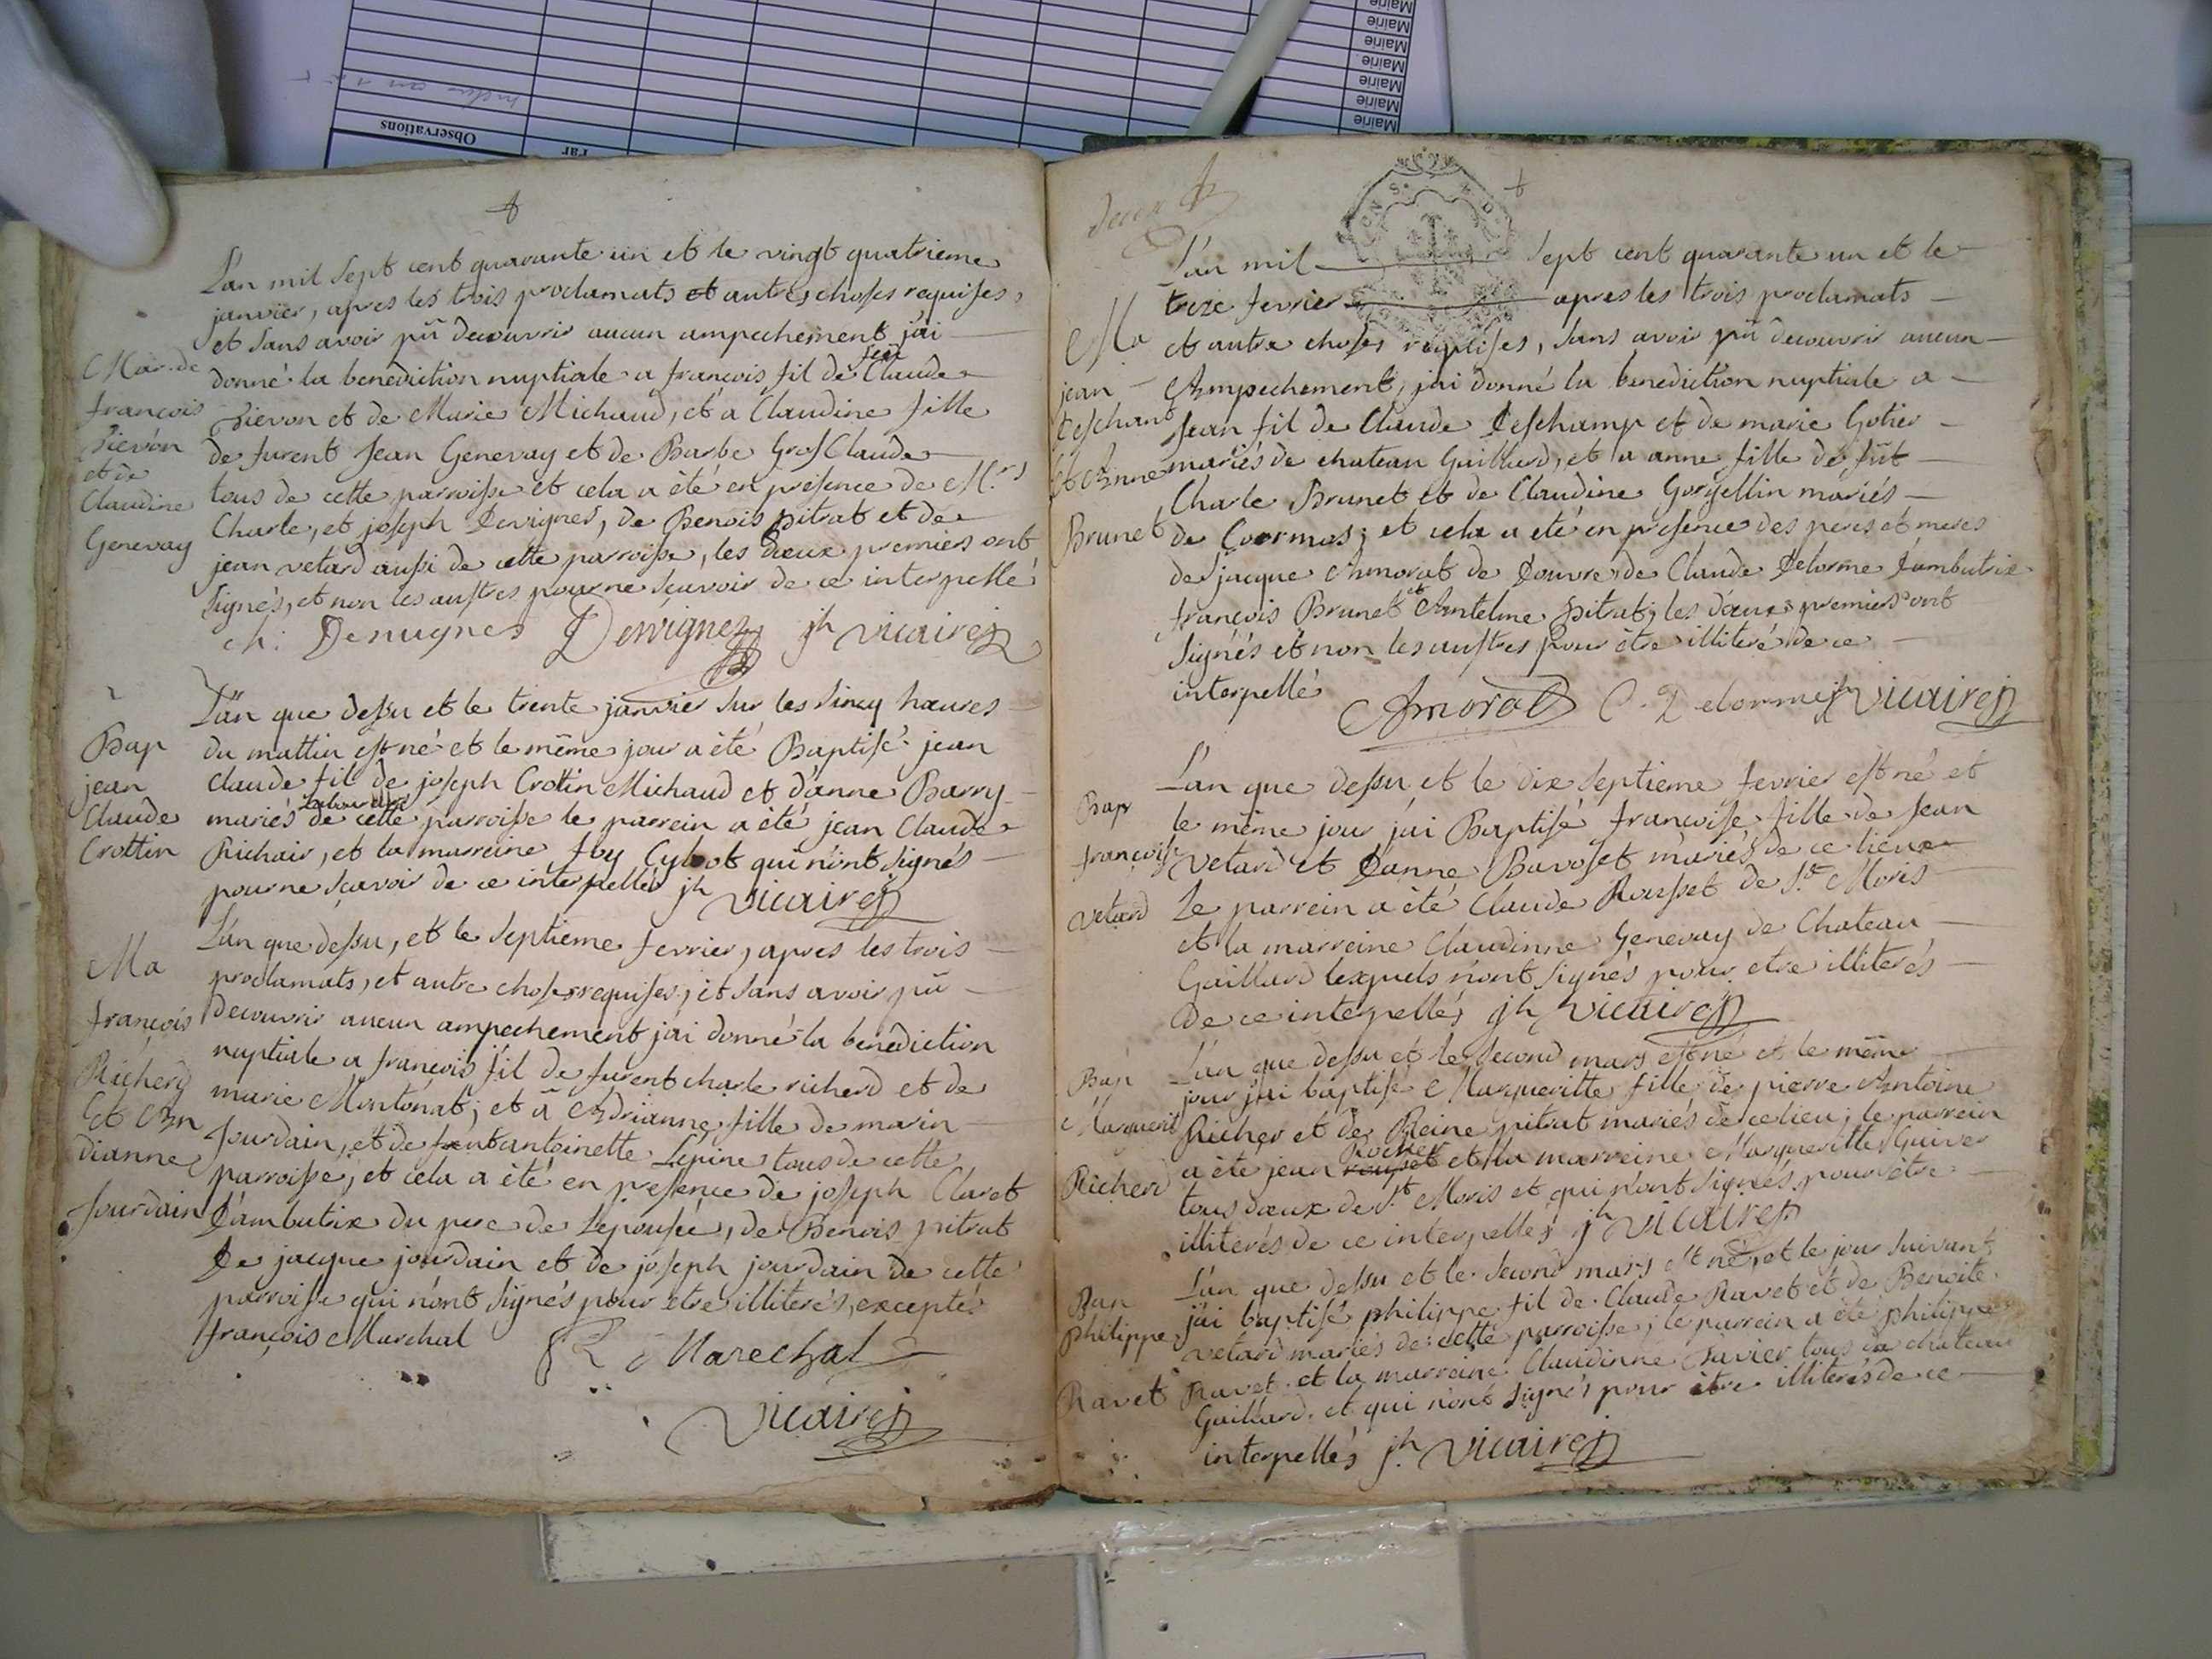 Mairie
Mairie
Mairie
Mairie
Mairie
Mairie
Mairie
Observations
Par
L'an mil sept cent quarante un et le vingt quatrieme
janvier, apres les trois proclamats et autres choses requises,
et sans avoir pû decouvrir aucun ampechement j'ai
donné la benediction nuptiale a françois fil de feu Claude
Pievon et de Marie Michaud, et a Claudine fille
de furent Jean Genevay et de Barbe Gros Claude
tous de cette parroisse et cela a été en présence de M.rs
Charle, et joseph Devignes, de Benois pitrat et de
jean vetard aussi de cette parroisse, les dœux premiers ont
signés, et non les austres pour ne scavoir de ce interpellé
ch: Denugnes Devignes jh vicaire
Mar. de
françois
Pievon
et de
Claudine
Genevay
L'an que dessu et le trente janvier sur les sincq hœures
du mattin est né et le même jour a été Baptisé jean
Claude fil de joseph Crottin Michaud et d'anne Barry
mariés laboureur de cette parroisse le parrein a été jean Claude
Richair, et la marreine foy Cybot qui n'ont signés
pour ne scavoir de ce interpellés jh vicaire
Bap
jean
Claude
Crottin
L'an que dessu, et le septieme fevrier, apres les trois
proclamats, et autre choses requises, et sans avoir pû
decouvrir aucun ampechement j'ai donné la benédiction
nuptiale a françois fil de furent charle richerd et de
marie Montonat; et a Andrianne fille de marin
Jourdain, et de feu antoinette Lépine tous de cette
parroisse, et cela a été en presence de joseph Claret
d'ambutrix du pere de Lepousée, de Benois pitrat
De jacque jourdain et de joseph jourdain de cette
parroisse qui n'ont signés pour etre illitérés, exceptés
françois Marchal
Marechal
vicaire
Ma
françois
Richerd
Et An
dianne
Jourdain
deux
L'an mil sept cent quarante un et le
treize fevrier apres les trois proclamats
et autre choses requises, sans avoir pû decouvrir aucun
Ampechement, j'ai donné la benediction nuptiale a
Jean fil de Claude Deschamp et de marie Gotier
mariés de chateau Gaillard, et a anne fille de fût
Charle Brunet et de Claudine Gorgellin mariés
de Cormos; et cela a été en presence des peres et meres
de jacque Amorat de Douvre, de Claude Delorme d'ambutrix
françois Brunet et Antelme pitrat, les dœux premiers ont
signés et non les austres pour être illiteré de ce
interpellés Amorat C. Delorme jh vicaire
Ma
jean
Deschant
et Anne
Brunet
L'an que dessu et le dix septieme fevrier est né et
le même jour j'ai Baptisé françoise fille de Jean
vetard et Danne Bavoset mariés de ce lieux
Le parrein a été Claude Rousset de St Moris
et la marreine Claudinne Genevay de Chateau
Gaillard lexquels n'ont signés pour etre illiterés
de ce interpellés jh vicaire
Bap
françoise
vetard
L'an que dessu et le second mars est né et le même
jour j'ai baptisé Margueritte fille de pierre Antoine
Richer et de Reine pitrat mariés de ce lieu; le parrein
a éte jean Rocher et la marreine Margueritte Guiver
tous dœux de St Moris et qui n'ont signés pour être
illiterés de ce interpellés jh vicaire
Bap
Marguerit
Richerd
L'an que dessu et le second mars est né, et le jour suivant
j'ai baptisé philippe fil de Claude Ravet et de Benoite
vetard mariés de cette parroisse; le parrein a été philippe
Ravet et la marreine Claudinne Javier tous de chateau
Gaillard et qui n'ont signés pour être illiterés de ce
interpellés jh. vicaire
Bap
philippe
Ravet